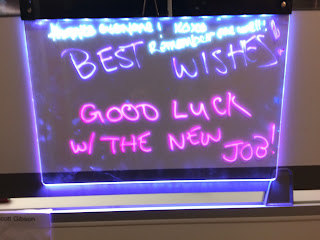 everyone! xoxo
Remember me well!
BEST WISHES!
GOOD LUCK
W/ THE NEW
JOB!
Gibson